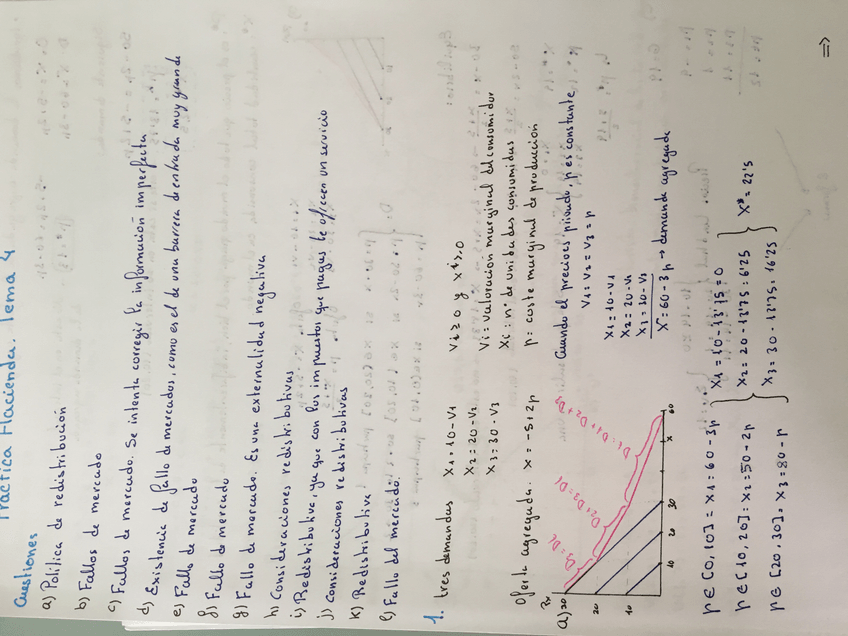 Práctica Hacienda. Tema 4
Cuestiones
a) Política de redistribución
b) Fallos de mercado
c) Fallos de mercado. Se intenta corregir la información imperfecta
d) Existencia de fallo de mercados, como es el de una barrera de entrada muy grande
e) Fallo de mercado
f) Fallo de mercado
g) Fallo de mercado. Es una externalidad negativa
h) Consideraciones redistributivas
i) Redistributiva, ya que con los impuestos que pagas te ofrecen un servicio
j) Consideraciones redistributivas
k) Redistributiva
l) Fallo del mercado.
1. tres demandas x1 = 10 - v1 vi ≥ 0 y xi ≥ 0
x2 = 20 - v2 vi = valoración marginal del consumidor
x3 = 30 - v3 xi = nº de unidades consumidas
Oferta agregada. x = -5 + 2p p = coste marginal de producción
a) Cuando el precio es privado, p es constante
v1 = v2 = v3 = p
x1 = 10 - v1
x2 = 20 - v2
x3 = 30 - v3
x = 60 - 3p → demanda agregada
30
20
10
D3 = D1
D2 + D3 = D1
D1 = D1 + D2 + D3
10 20 30 x 60
p ∈ [0, 10] = x1 = 60 - 3p
p ∈ [10, 20] : x2 = 50 - 2p
p ∈ [20, 30] = x3 = 80 - p
x1 = 10 - 13'75 = 0
x2 = 20 - 13'75 = 6'25
x3 = 30 - 13'75 = 16'25
x* = 22'5
=>